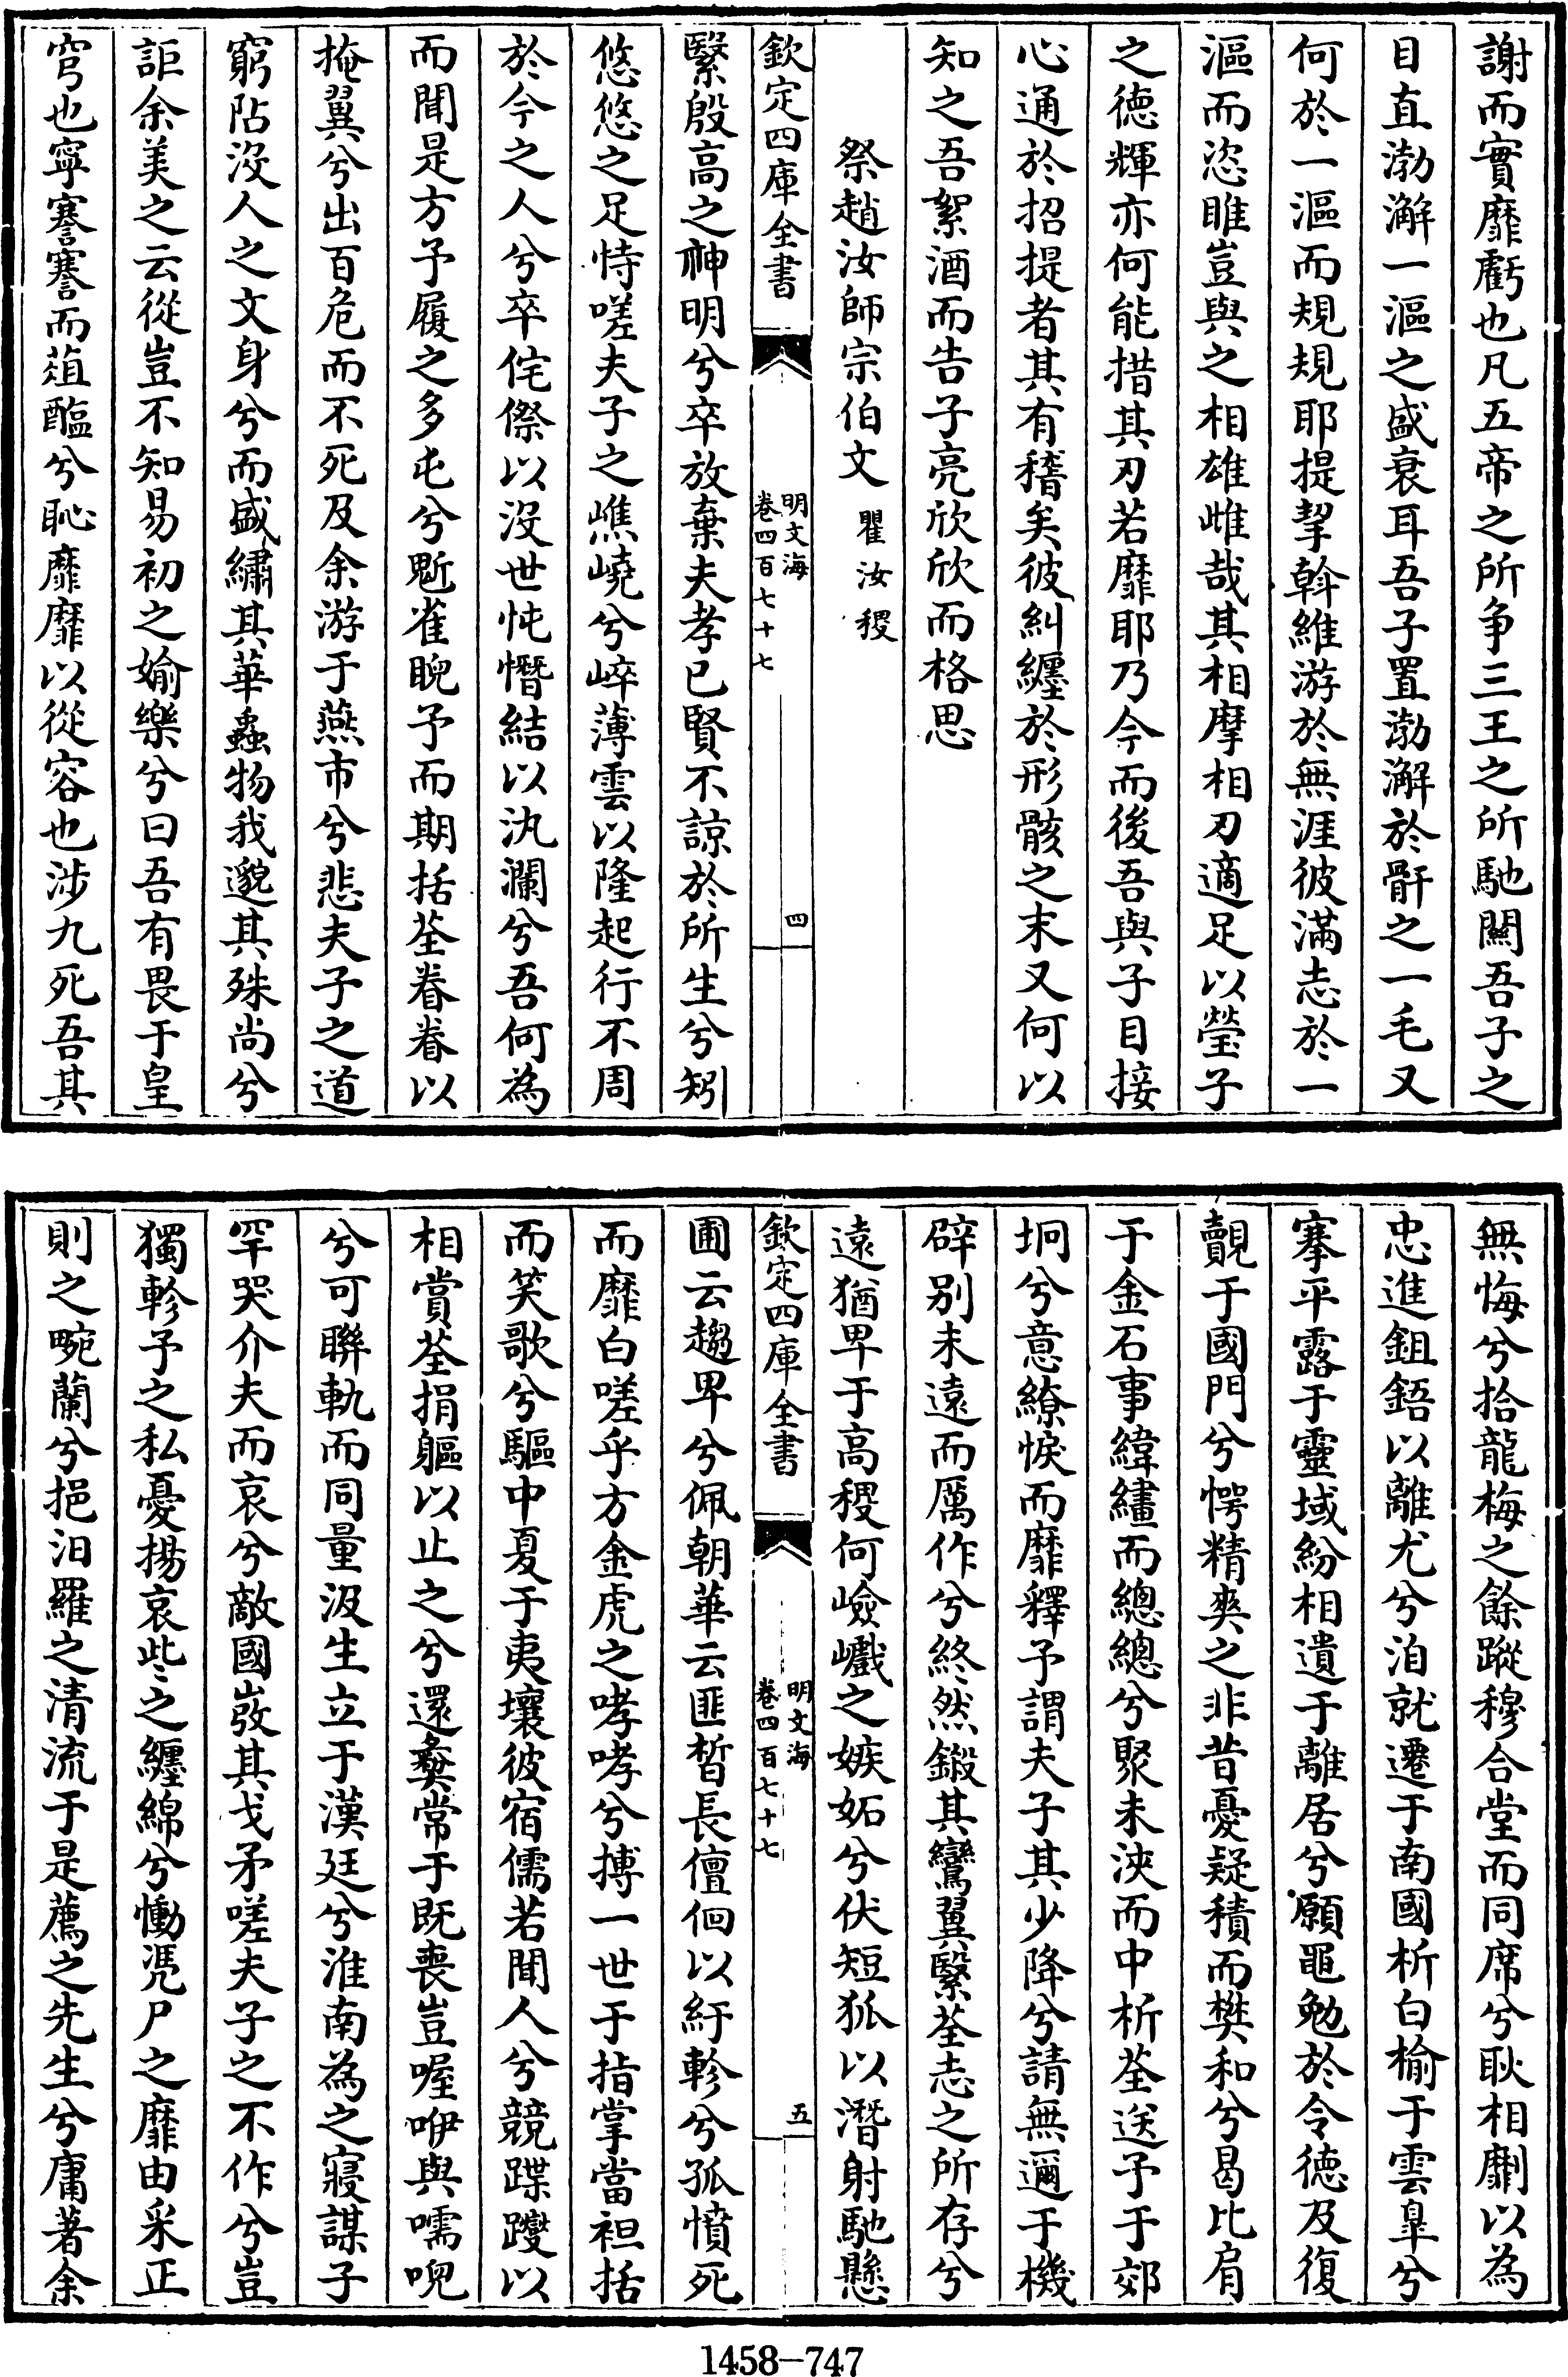 謝而實靡虧也凡五帝之所争三王之所馳闗吾子之
目直渤澥一漚之盛衰耳吾子置渤澥於骭之一毛又
何於一漚而規規耶提挈斡維游於無涯彼滿志於一
漚而恣睢豈與之相雄雌哉其相摩相刃適足以瑩子
之德輝亦何能措其刃若靡耶乃今而後吾與子目接
心通於招提者其有稽矣彼糾纒於形骸之末又何以
知之吾絮酒而告子亮欣欣而格思
祭趙汝師宗伯文 瞿汝稷
欽定四庫全書 明文海 卷四百七十七 四
繄殷高之神明兮卒放棄夫孝已賢不諒於所生兮矧
悠悠之足恃嗟夫子之嶕嶢兮崒薄雲以隆起行不周
於今之人兮卒侘傺以沒世忳憯結以汍瀾兮吾何為
而聞是方予履之多屯兮鬿雀睨予而期括荃眷眷以
掩翼兮出百危而不死及余游于燕市兮悲夫子之道
窮阽沒人之文身兮而盛繡其華蟲物我邈其殊尚兮
詎余美之云從豈不知易初之媮樂兮曰吾有畏于皇
穹也寧謇謇而葅醢兮恥靡靡以從容也涉九死吾其
無悔兮拾龍梅之餘蹤穆合堂而同席兮耿相劘以為
忠進鉏鋙以離尤兮洎就遷于南國析白榆于雲臯兮
搴平露于靈域紛相遺于離居兮願黽勉於令德及復
覿于國門兮愕精爽之非昔憂疑積而樊和兮曷比肩
于金石事緯繣而總總兮聚未浹而中析荃送予于郊
坰兮意繚悷而靡釋予謂夫子其少降兮請無邇于機
辟别未遠而厲作兮終然鍛其鸞翼繄荃志之所存兮
遠猶卑于高稷何嶮巇之嫉妬兮伏短狐以潛射馳懸
欽定四庫全書 明文海 卷四百七十七 五
圃云趨卑兮佩朝華云匪晳長儃佪以紆軫兮孤憤死
而靡白嗟乎方金虎之哮哮兮摶一世于指掌當袒括
而笑歌兮驅中夏于夷壤彼宿儒若聞人兮競蹀躞以
相賞荃捐軀以止之兮還彛常于既喪豈喔咿與嚅唲
兮可聨軌而同量汲生立于漢廷兮淮南為之寢謀子
罕哭介夫而哀兮敵國敚其戈矛嗟夫子之不作兮豈
獨軫予之私憂揚哀些之纒綿兮慟凴尸之靡由采正
則之畹蘭兮挹汨羅之清流于是薦之先生兮庸著余
1458—747